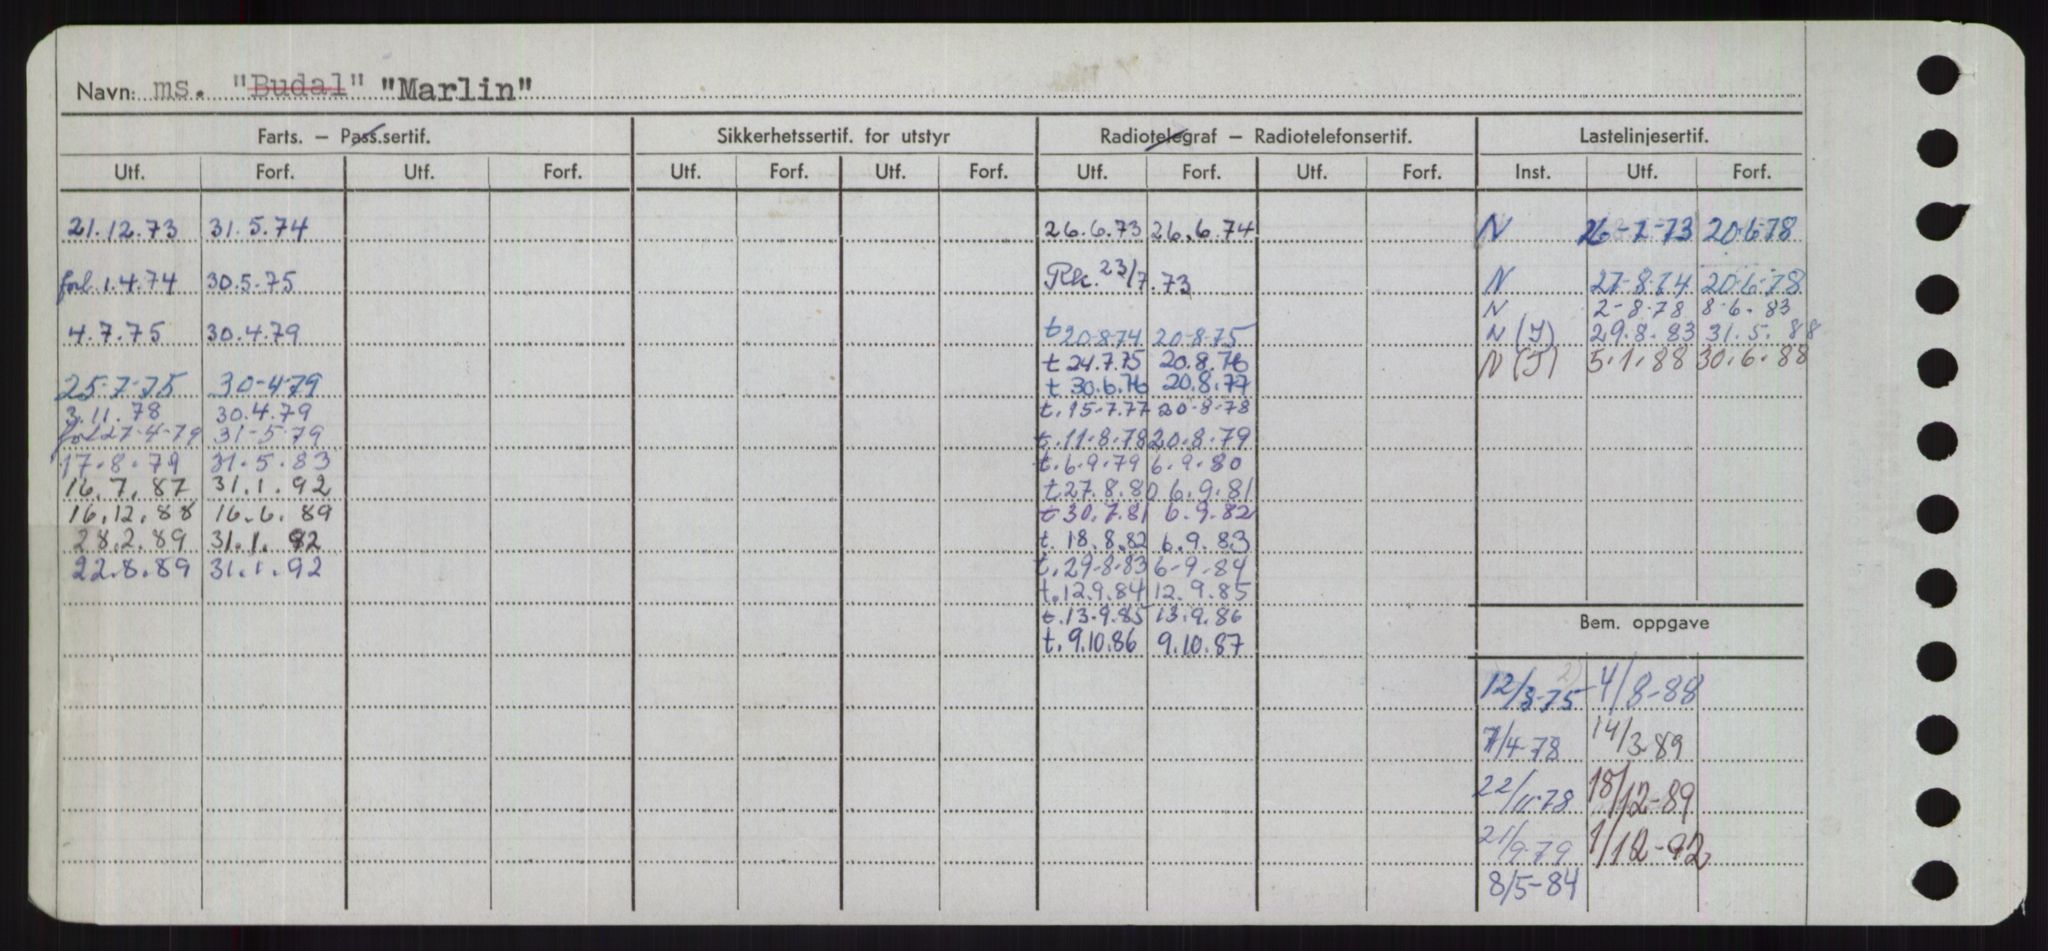 Navn: ms. "Budal" "Marlin"
Farts. — Pass.sertif. Sikkerhetssertif. for utstyr Radiotelegraf — Radiotelefonsertif. Lastelinjesertif.
Utf. Forf. Utf. Forf. Utf. Forf. Utf. Forf. Utf. Forf. Utf. Forf. Inst. Utf. Forf.
21.12.73 31.5.74 26.6.73 26.6.74 N 26-7-73 20.6-78
forl. 1.4.74 30.5.75 Rk. 23/7.73 N 27-8.74 20-6-78
N 2-8-78 8-6.83
4.7.75 30.4.79 t 20-8-74 20-8-75 N (I) 29.8.83 31.5.88
t 24.7.75 20.8.76 N (I) 5.1.88 30.6.88
25-7-75 30-4-79 t 30.6.76 20.8.77
3.11.78 30.4.79 t. 15-7.77 20-8-78
forl 27-4-79 31-5-79 t. 11.8.78 20.8.79
17.8.79 31.5.83 t. 6.9.79 6.9.80
16.7.87 31.1.92 t 27.8.80 6.9.81
16.12.88 16.6.89 t 30.7.81 6.9.82
28.2.89 31.1.92 t. 18.8.82 6.9.83
22.8.89 31.1.92 t. 29-8-83 6-9-84
t. 12.9.84 12.9.85
t. 13.9.85 13.9.86
Bem. oppgave
t. 9.10.86 9.10.87
12/3-75 4/8-88
7/4-78 14/3-89
22/11-78 18/12-89
21/9-79 1/12-92
8/5-84